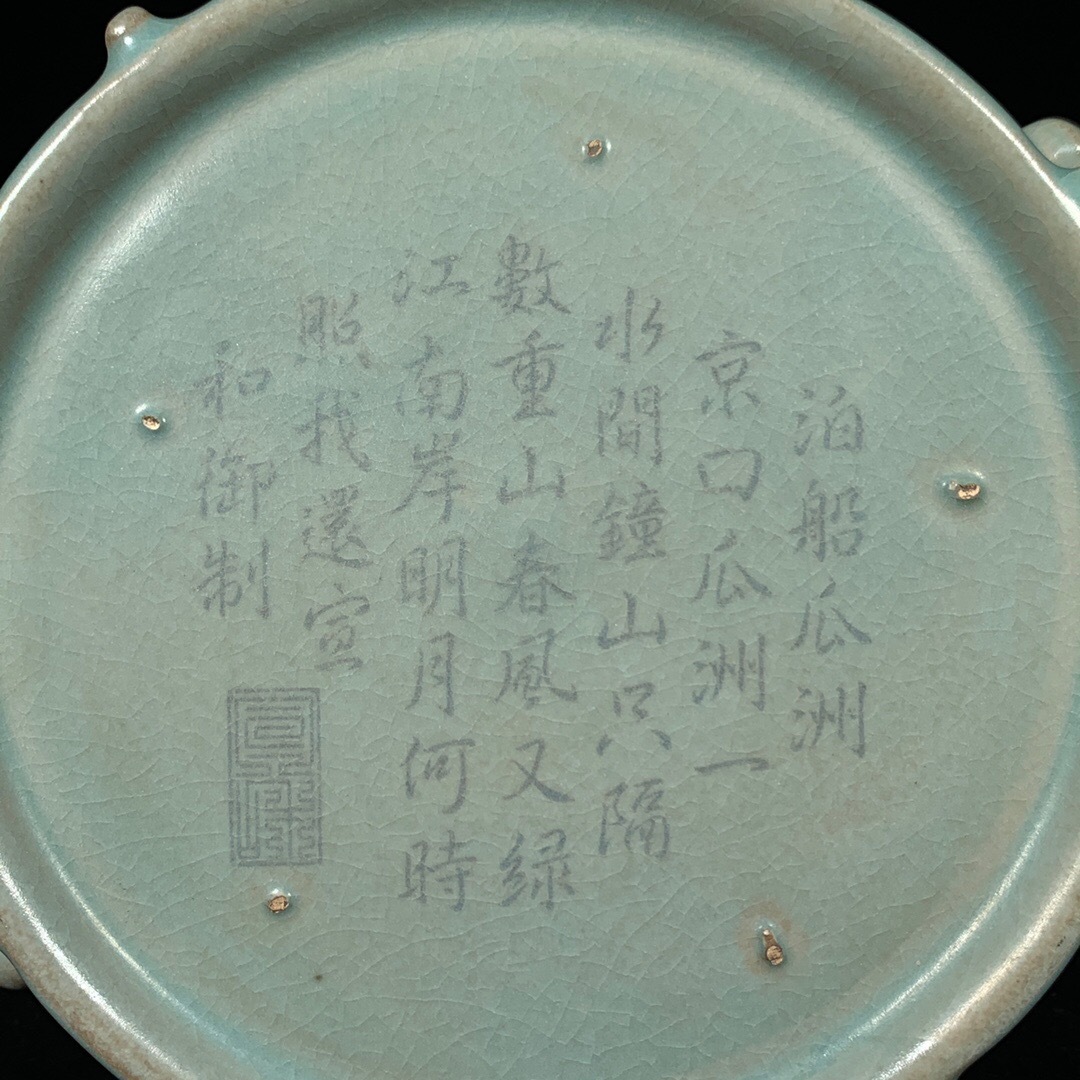 泊船瓜洲
京口瓜洲一
水間鐘山只隔
數重山春風又緑
江南岸明月何時
照我還宣
和御制